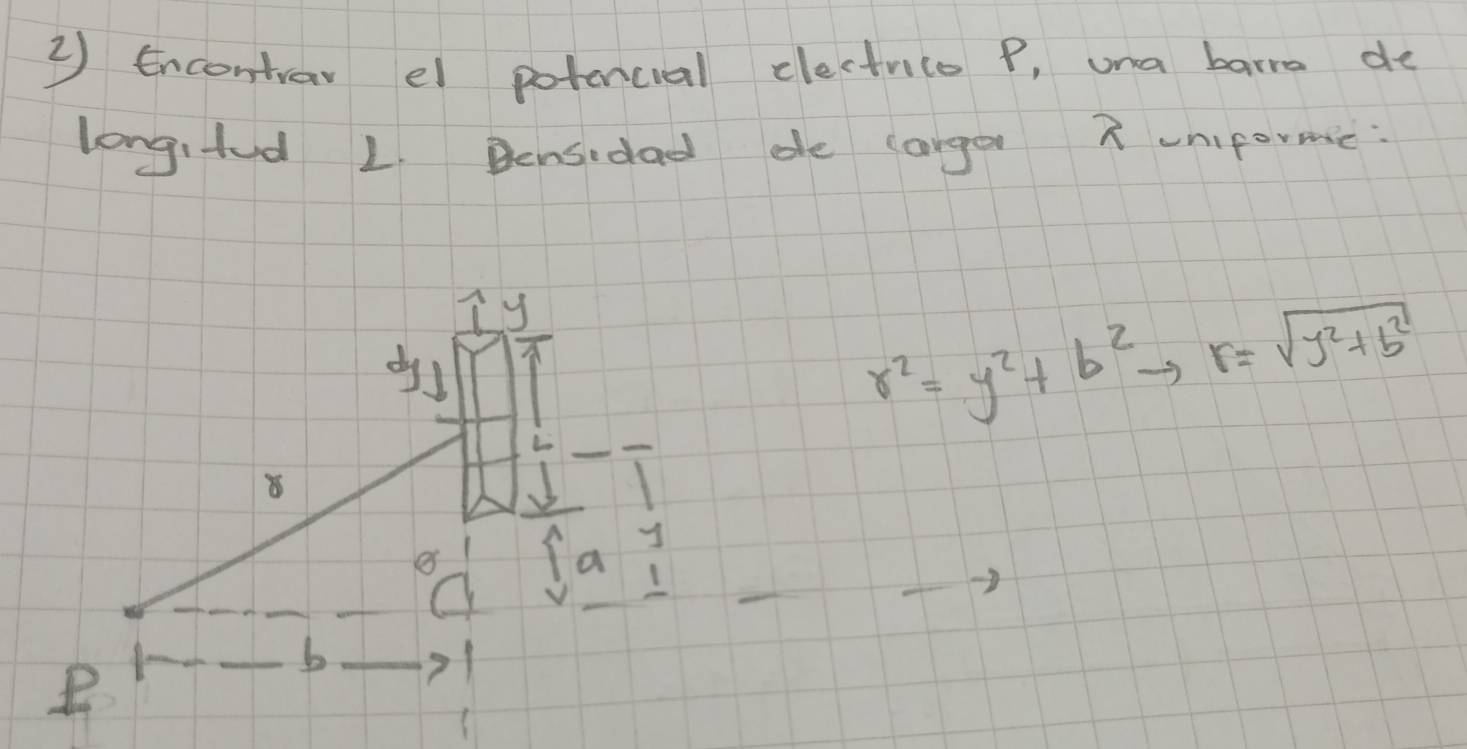 2) Encontrar el potencial electrico P, una barra de
longitud L. Densidad de carga λ uniforme:
y
dy
r² = y² + b² → r = √y² + b²
L
r
y
a
θ
b
P